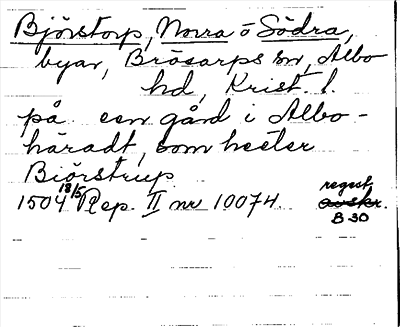 Björstorp, Norra o Södra,
byar, Bråsarps sn, Albo
hd, Krist. l.
på een gård i Albo-
häradt, som heeter
Biörstrup
1504 18/5 Rep. II nr 10074. regest
avskr.
B 30